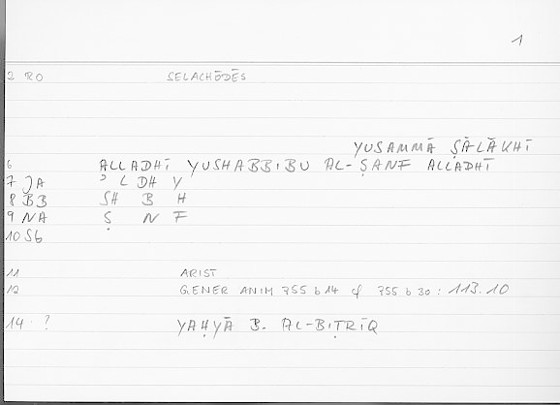 1
2 RO SELACHŌDĒS
YUSAMMĀ ṢĀLĀKHĪ
6 ALLADHĪ YUSHABBIBU AL-ṢANF ALLADHĪ
7 JA ʾ L DH Y
8 BB SH B H
9 NA Ṣ N F
10 Sb
11 ARIST
12 GENER ANIM 755 b 14 cf 755 b 30 : 113.10
14 ? YAḤYĀ B. AL-BIṬRĪQ